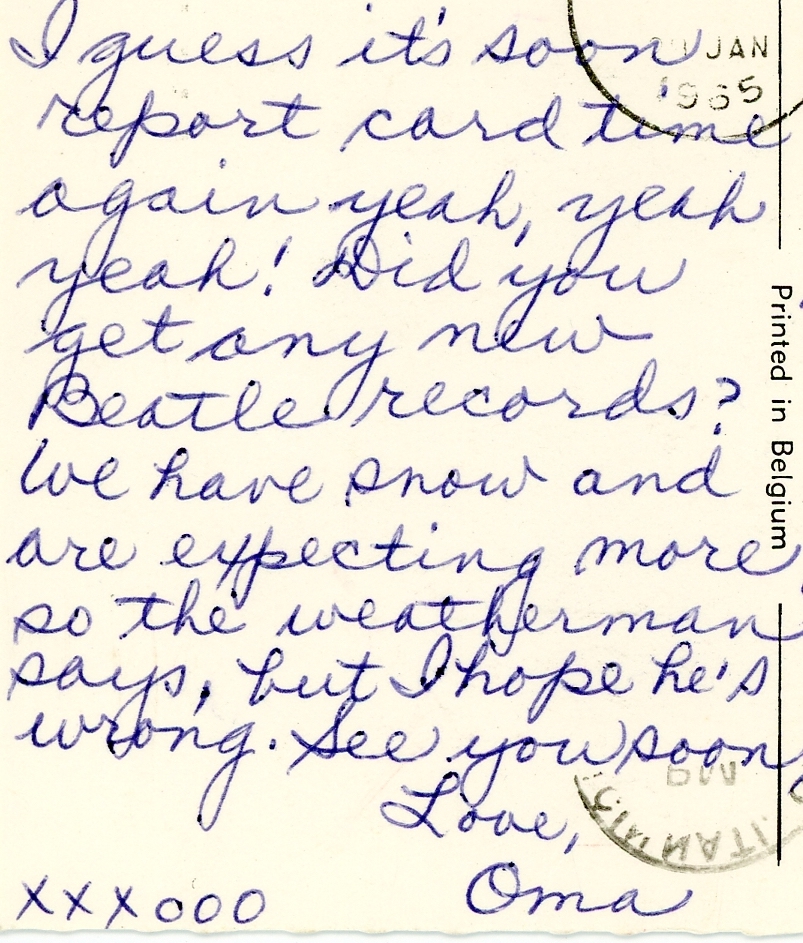 I guess it's soon
report card time
again yeah, yeah
yeah! Did you
get any new
Beatle records?
We have snow and
are expecting more
so the weatherman
says, but I hope he's
wrong. See you soon
Love,
Oma
xxxooo
JAN
1965
Printed in Belgium